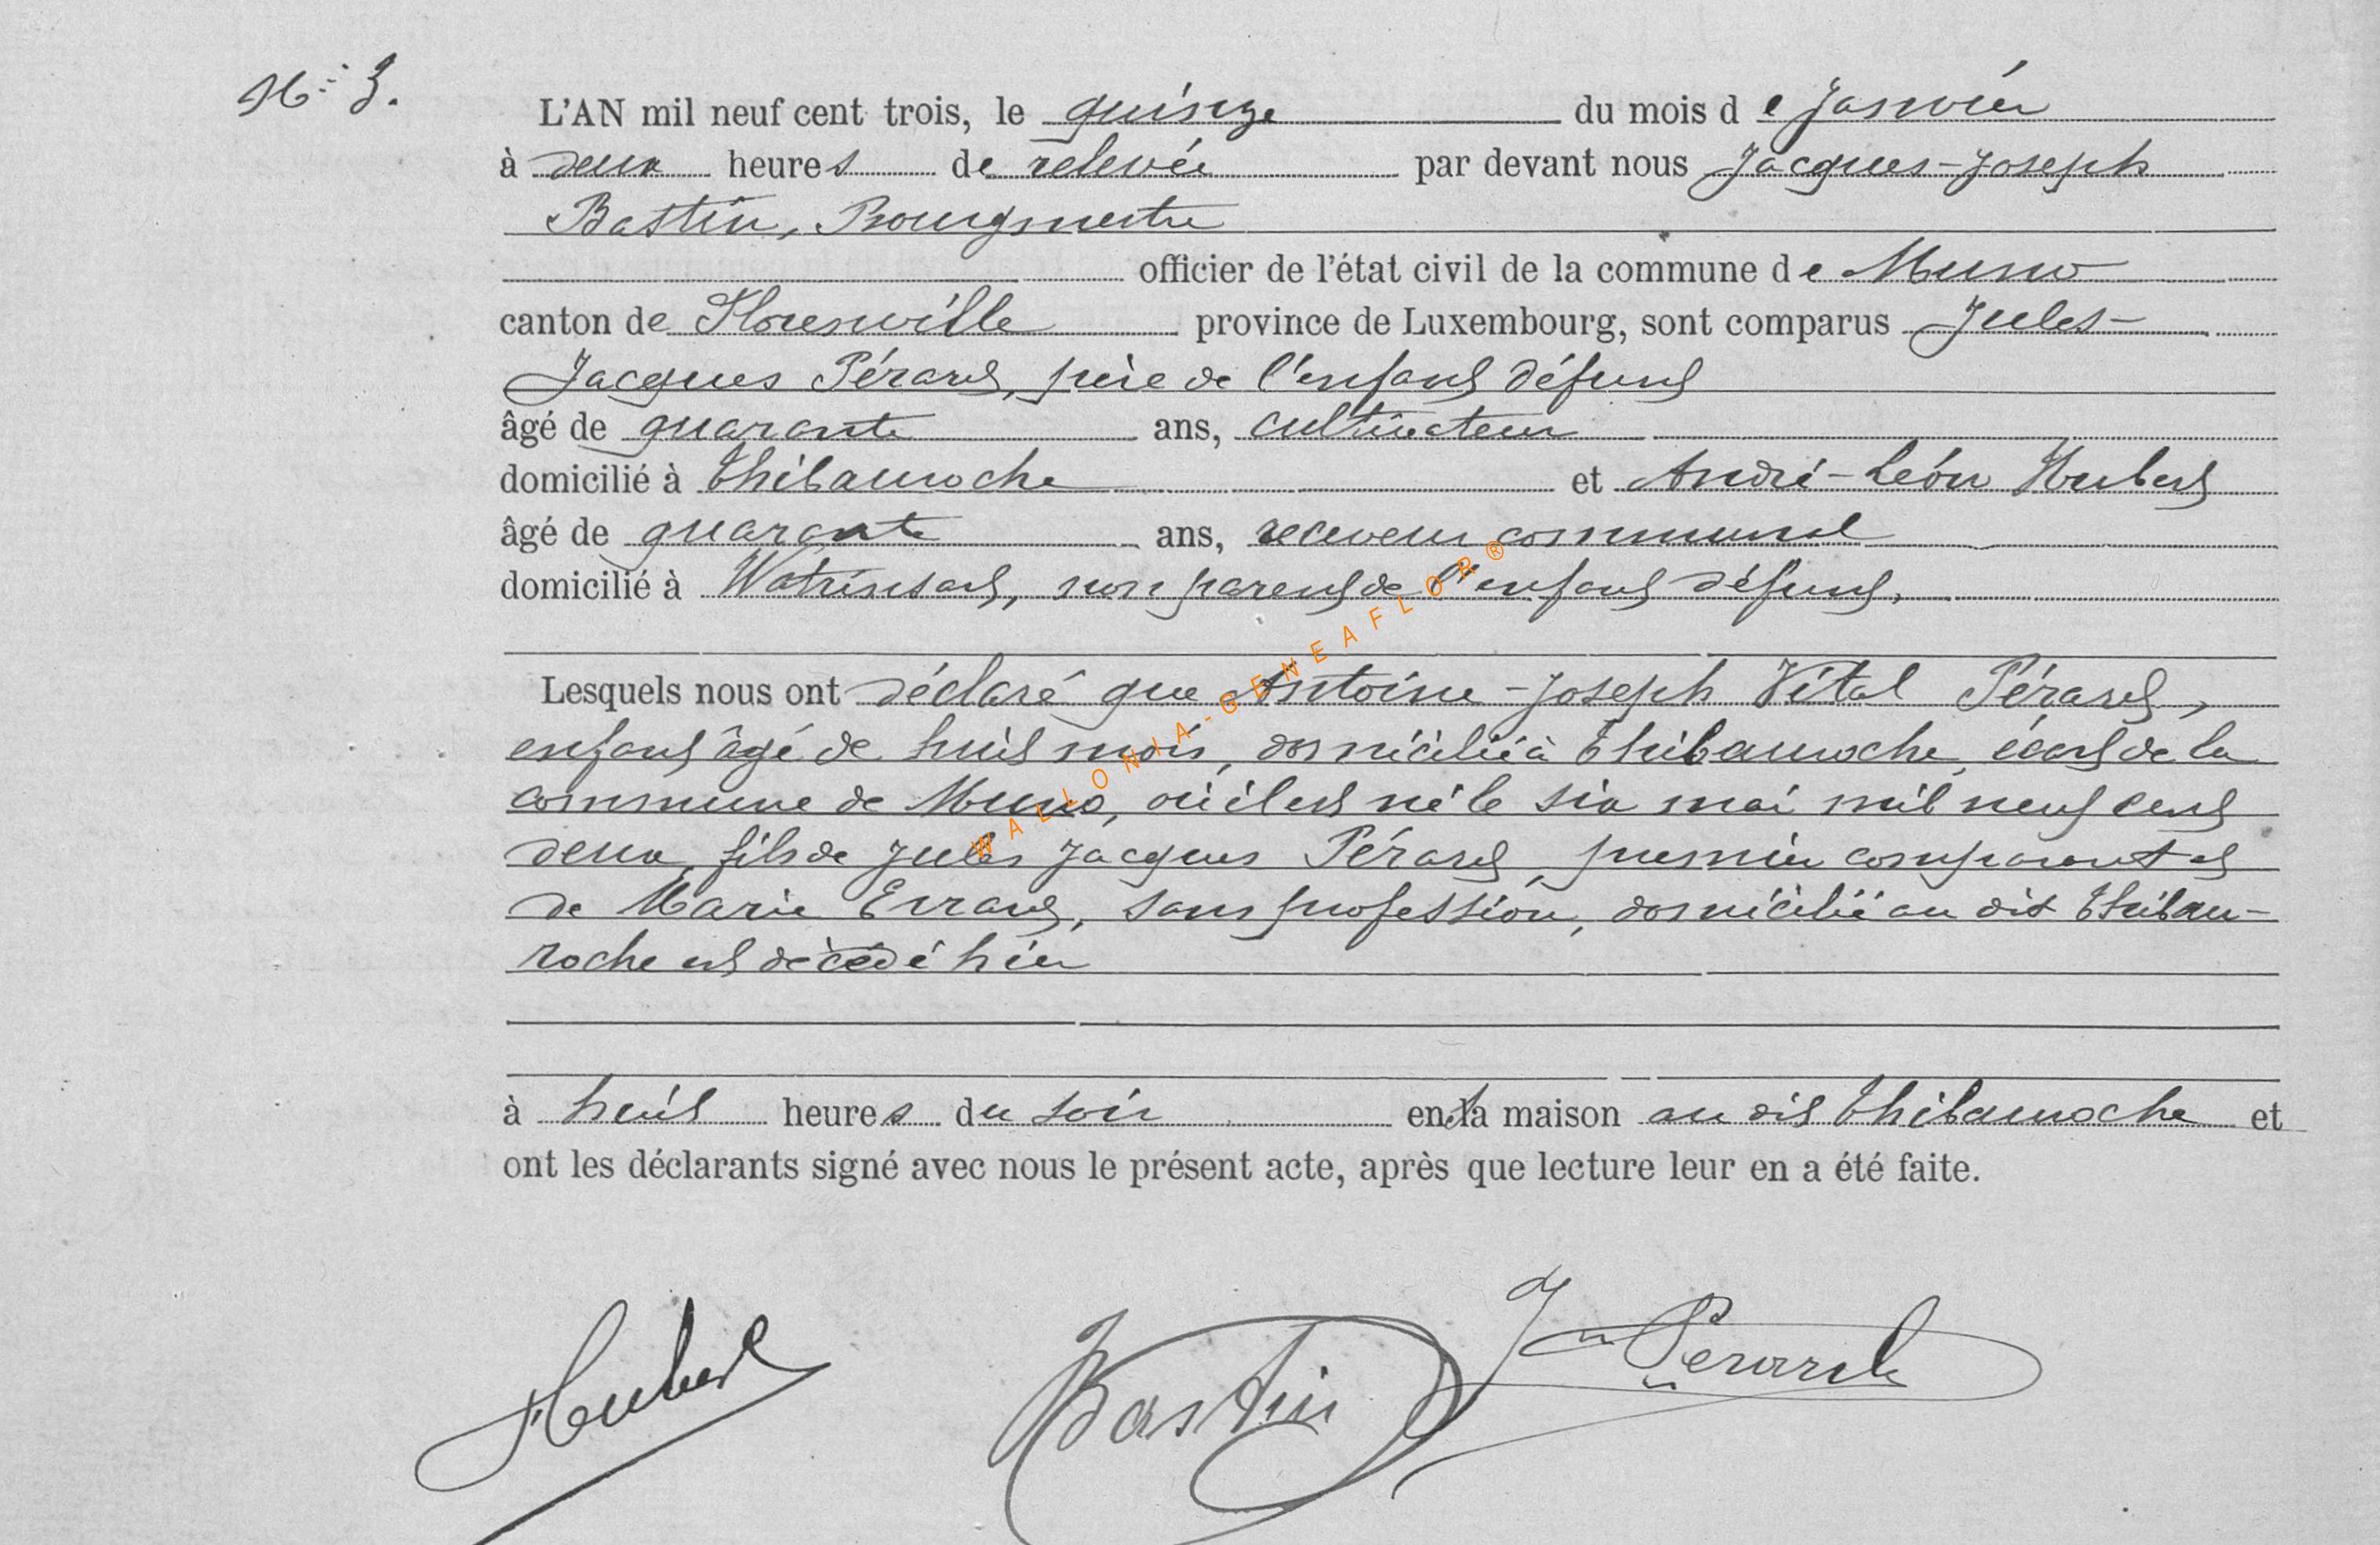 N° 3.
L'AN mil neuf cent trois, le quinze du mois de Janvier
à deux heures de relevée par devant nous Jacques-Joseph
Bastin, Bourgmestre
officier de l'état civil de la commune de Muno
canton de Florenville province de Luxembourg, sont comparus Jules-
Jacques Pérard, père de l'enfant défunt
âgé de quarante ans, cultivateur
domicilié à Thibauroche et André-Léon Hubert
âgé de quarante ans, receveur communal
domicilié à Watrinsart, non parent de l'enfant défunt.
Lesquels nous ont déclaré que Antoine-Joseph Vital Pérard,
enfant âgé de huit mois, domicilié à Thibauroche, écart de la
commune de Muno, où il est né le six mai mil neuf cent
deux, fils de Jules Jacques Pérard, premier comparant et
de Marie Errard, sans profession, domicilié au dit Thibau-
roche est décédé hier
à huit heures du soir en sa maison au dit Thibauroche et
ont les déclarants signé avec nous le présent acte, après que lecture leur en a été faite.
Hubert Bastin J Perard
WALLONIA-GENEAFLOR®